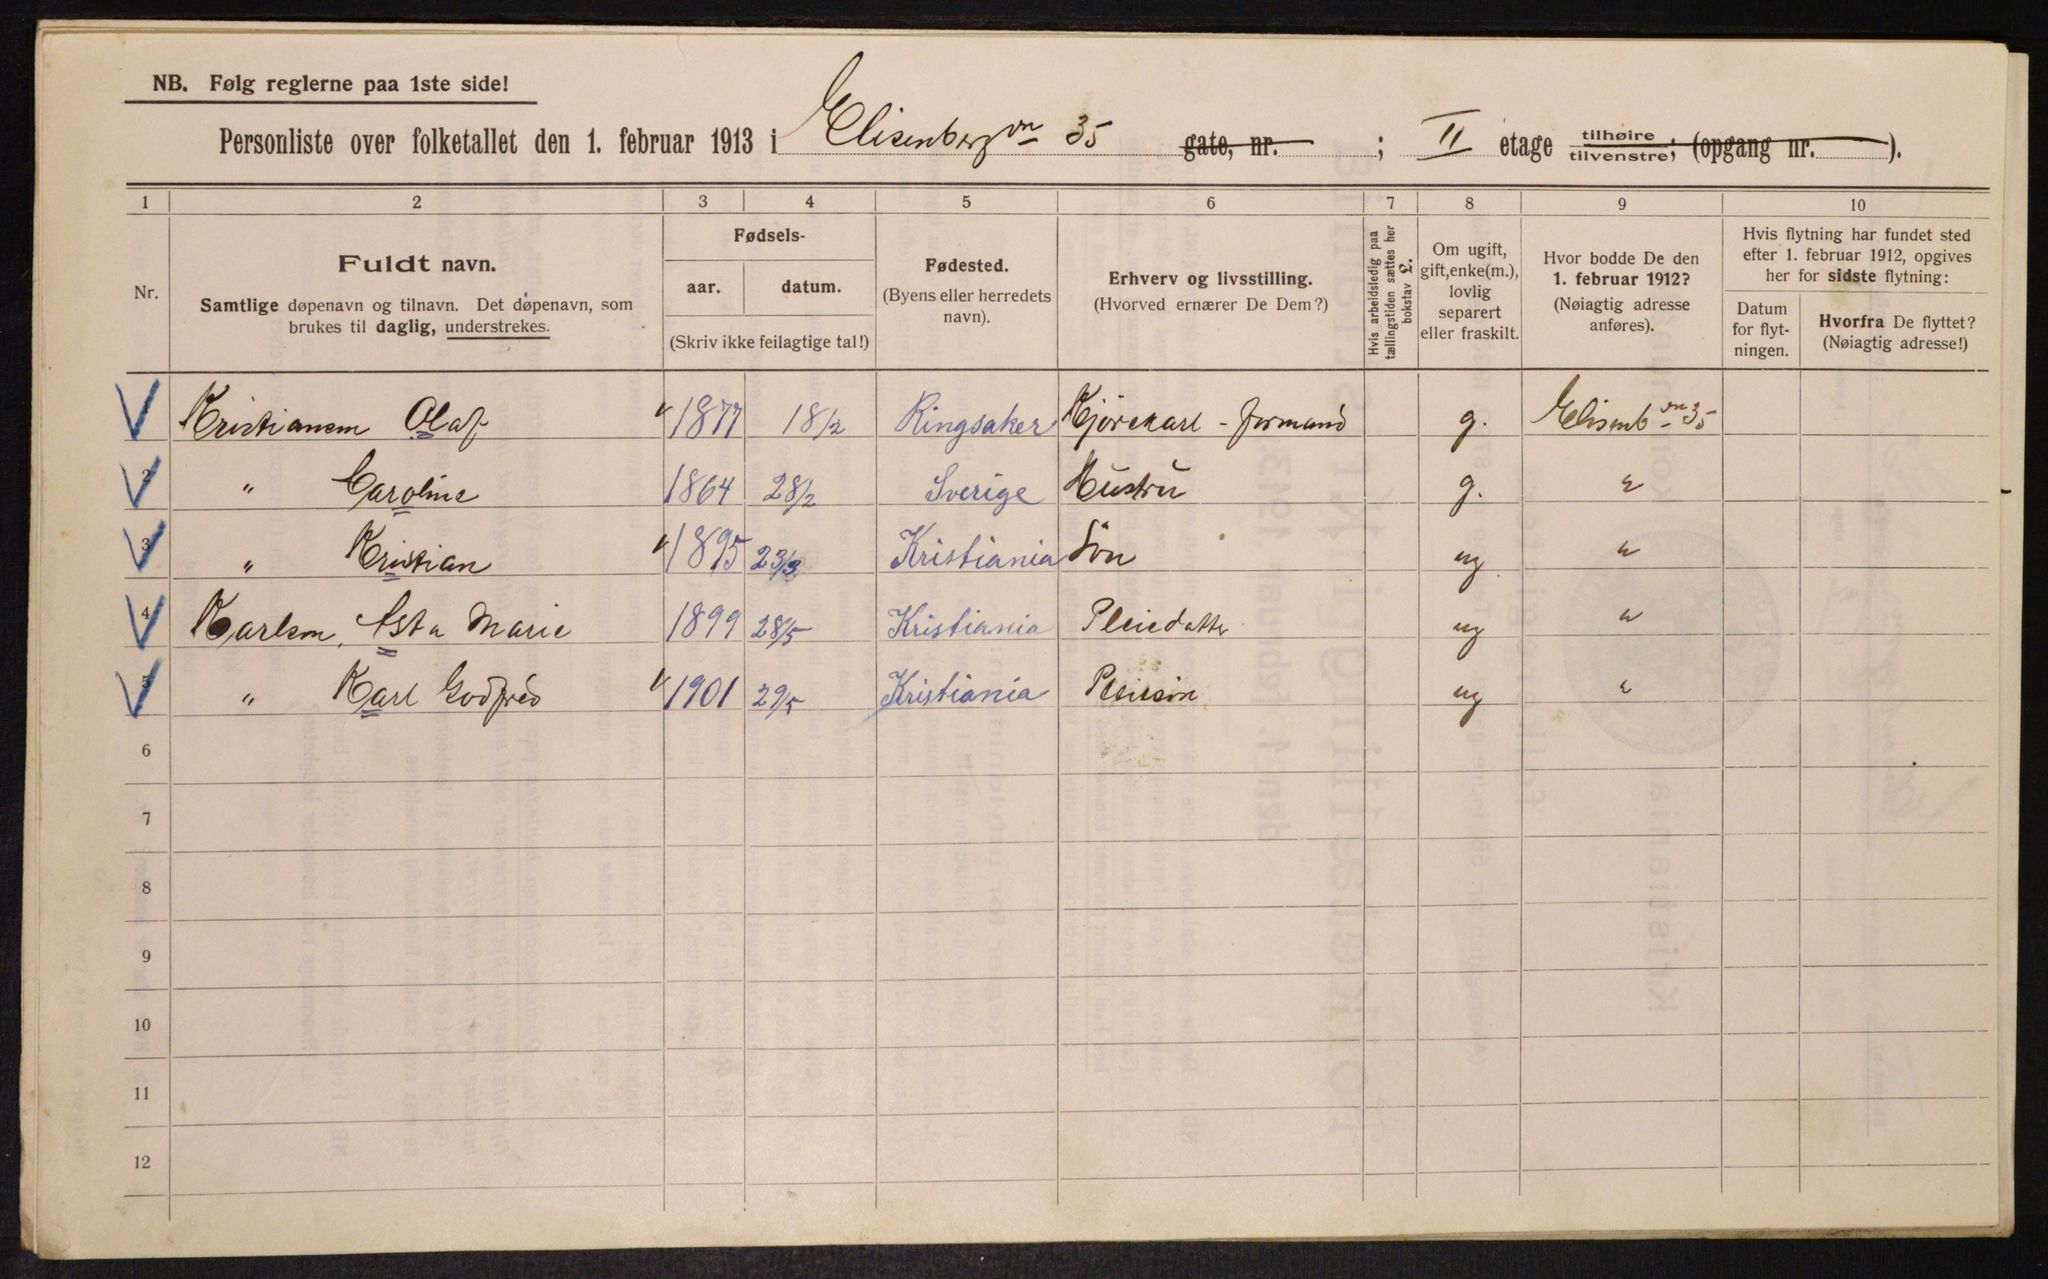 NB. Følg reglerne paa 1ste side!
Personliste over folketallet den 1. februar 1913 i Elisenberg vn 35 gate, nr. ; II etage tilhøire tilvenstre; (opgang nr. ).
1 2 3 4 5 6 7 8 9 10
Nr.
Fuldt navn.
Samtlige døpenavn og tilnavn. Det døpenavn, som
brukes til daglig, understrekes.
Fødsels-
aar. datum.
(Skriv ikke feilagtige tal!)
Fødested.
(Byens eller herredets
navn).
Erhverv og livsstilling.
(Hvorved ernærer De Dem?)
Hvis arbeidsledig paa
tællingstiden sættes her
bokstav L.
Om ugift,
gift, enke(m.),
lovlig
separert
eller fraskilt.
Hvor bodde De den
1. februar 1912?
(Nøiagtig adresse
anføres).
Hvis flytning har fundet sted
efter 1. februar 1912, opgives
her for sidste flytning:
Datum
for flyt-
ningen.
Hvorfra De flyttet?
(Nøiagtig adresse!)
Kristiansen Olaf 1877 18/2 Ringsaker Kjörekarl - formand g. Elisenb vn 35
2 " Caroline 1864 28/2 Sverige Hustru g. "
3 " Kristian 1895 23/3 Kristiania Sön ug "
4 Karlsen, Asta Marie 1899 28/5 Kristiania Pleiedatter ug "
5 " Karl Godfred 1901 29/5 Kristiania Pleiesön ug "
6
7
8
9
10
11
12